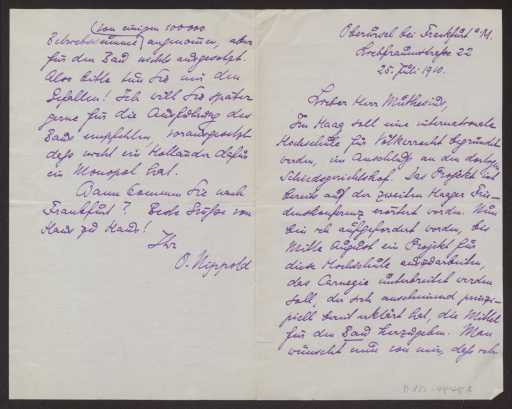 Oberursel bei Frankfurt a/M.
Liebfrauenstraße 22
25. Juli 1910.
Lieber Herr Muthesius,
Im Haag soll eine internationale
Hochschule für Völkerrecht begründet
werden, im Anschluß an den dortigen
Schiedsgerichtshof. Das Projekt ist
bereits auf der zweiten Haager Frie-
denskonferenz erörtert worden. Nun
bin ich aufgefordert worden, bis
Mitte August ein Projekt für
diese Hochschule auszuarbeiten,
das Carnegie unterbreitet werden
soll, der sich anscheinend prinzi-
piell bereit erklärt hat, die Mittel
für den Bau herzugeben. Man
wünscht nun von mir, daß ich
(von einigen 100000
angenommen, aber
für den Bau nichts ausgesetzt.
Also bitte tun Sie mir den
Gefallen! Ich will Sie später
gerne für die Ausführung des
Baus empfehlen, vorausgesetzt
daß nicht ein Holländer dafür
ein Monopol hat.
Wann kommen Sie nach
Frankfurt? Beste Grüße von
Haus zu Haus!
Ihr
O. Nippold